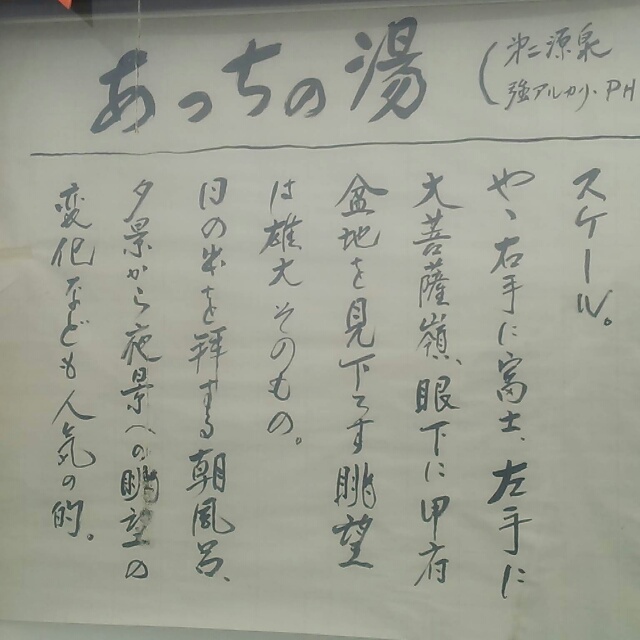 あっちの湯
(第二源泉
強アルカリ・PH
スケール。
やゝ右手に富士、左手に
大菩薩嶺、眼下に甲府
盆地を見下ろす眺望
は雄大そのもの。
日の出を拝する朝風呂、
夕景から夜景への眺望の
変化なども人気の的。